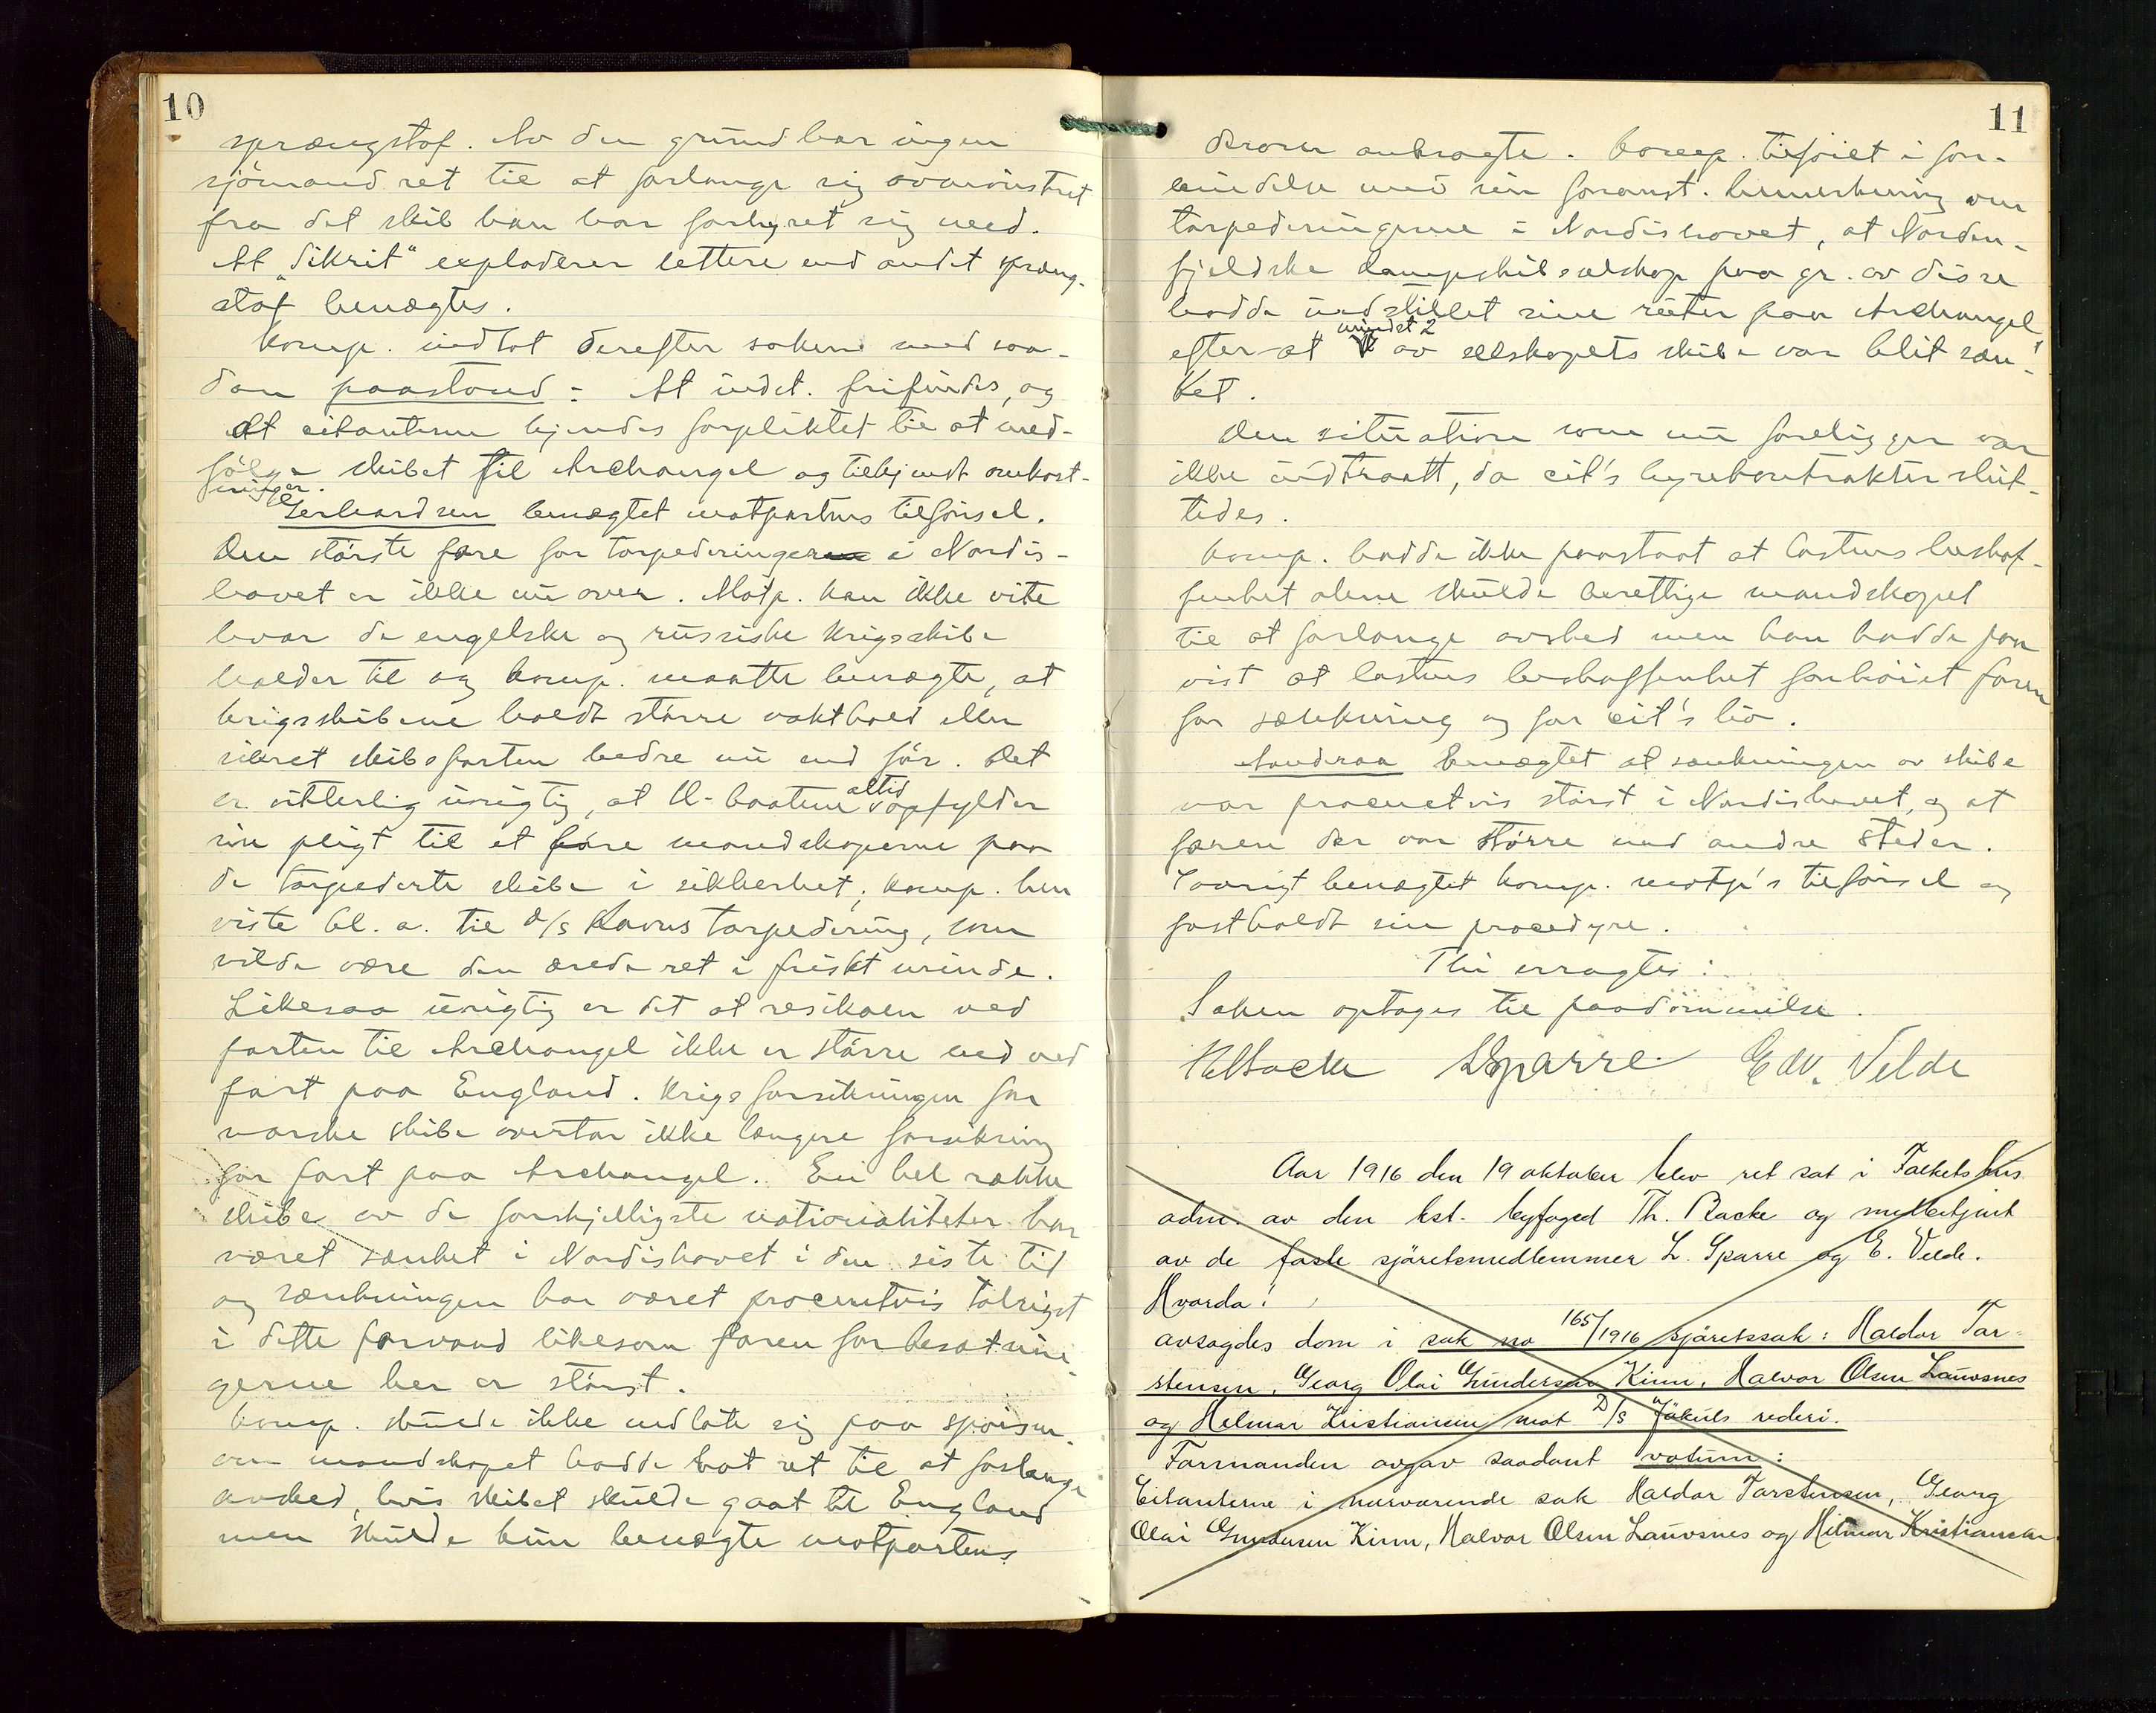 10
sprængstof. Av den grund har ingen
sjömand ret til at forlange sig avmönstret
fra det skib han har forhyret sig med.
At "Dikrit" exploderer lettere end andet spræng-
stof benægtes.
Komp. indlot derefter saken med saa-
dan paastand: At indst. frifindes, og
at citanterne kjendes forpliktet til at med-
fölge skibet til Archangel og tilkjendt omkost-
ninger.
Gerhardsen benægtet motpartens tilförsel.
Den störste fare for torpederinger i Nordis-
havet er ikke nu over. Motp. kan ikke vite
hvor de engelske og russiske krigsskibe
holder til og komp. maatte benægte, at
krigsskibene holdt större vakthold eller
sikret skibsfarten bedre nu end för. Det
er vitterlig urigtig, at U-baatene altid opfylder
sin pligt til at före mandskaperne paa
de torpederte skibe i sikkerhet; komp. hen
viste bl. a. til D/s Ravns torpedering, som
vilde være den ærede ret i friskt minde.
Likesaa urigtig er det at resikoen ved
farten til Archangel ikke er större end ved
fart paa England. Krigsforsikringen for
norske skibe overtar ikke længere forsikring
for fart paa Archangel. En hel række
skibe av de forskjelligste nationaliteter har
været sænket i Nordishavet i den siste tid
og sænkningen har været procentvis talrigst
i dette farvand likesom faren for besætnin
gerne her er störst.
Komp. skulde ikke indlate sig paa spörsm.
om mandskapet hadde hat ret til at forlange
avsked, hvis skibet skulde gaat til England
men skulde kun benægte motpartens
11
derom anbragte. Komp. tilföiet i for-
bindelse med sin foranst. bemerkning om
torpederingerne i Nordishavet, at Norden-
fjeldske dampskibsselskap paa gr. av disse
hadde indstillet sine ruter paa Archangel
efter at mindst 2 av selskapets skibe var blit sæn-
ket.
Den situation som nu foreligger var
ikke indtraatt, da cit's hyrekontrakter slut-
tedes.
Komp. hadde ikke paastaat at lastens beskaf-
fenhet alene skulde berettige mandskapet
til at forlange avsked men han hadde paa
vist at lastens beskaffenhet forhöiet faren
for sænkning og for cit's liv.
benægtet at sænkningen av skibe
var procentvis störst i Nordishavet, og at
faren der var större end andre steder.
Iövrigt benægtet komp. motp's tilförsel og
fastholdt sin procedyre.
Thi eragtes:
Saken optages til paadömmelse.
Sparre Edv. Velde
Aar 1916 den 19 oktober blev ret sat i Folkets hus
adm. av den kst. byfoged Th. Backe og medbetjent
av de faste sjöretsmedlemmer L. Sparre og E. Velde.
Hvorda:
avsagdes dom i sak no 165/1916 sjöretssak: Haldor Tor-
stensen, Georg Olai Gundersen Kinn, Halvor Olsen Lauvsnes
og Helmar Kristiansen mot D/s "Jökuls rederi.
Formanden avgav saadant votum:
Citanterne i nærværende sak Haldor Torstensen, Georg
Olai Gundersen Kinn, Halvor Olsen Lauvsnes og Hilmar Kristiansen